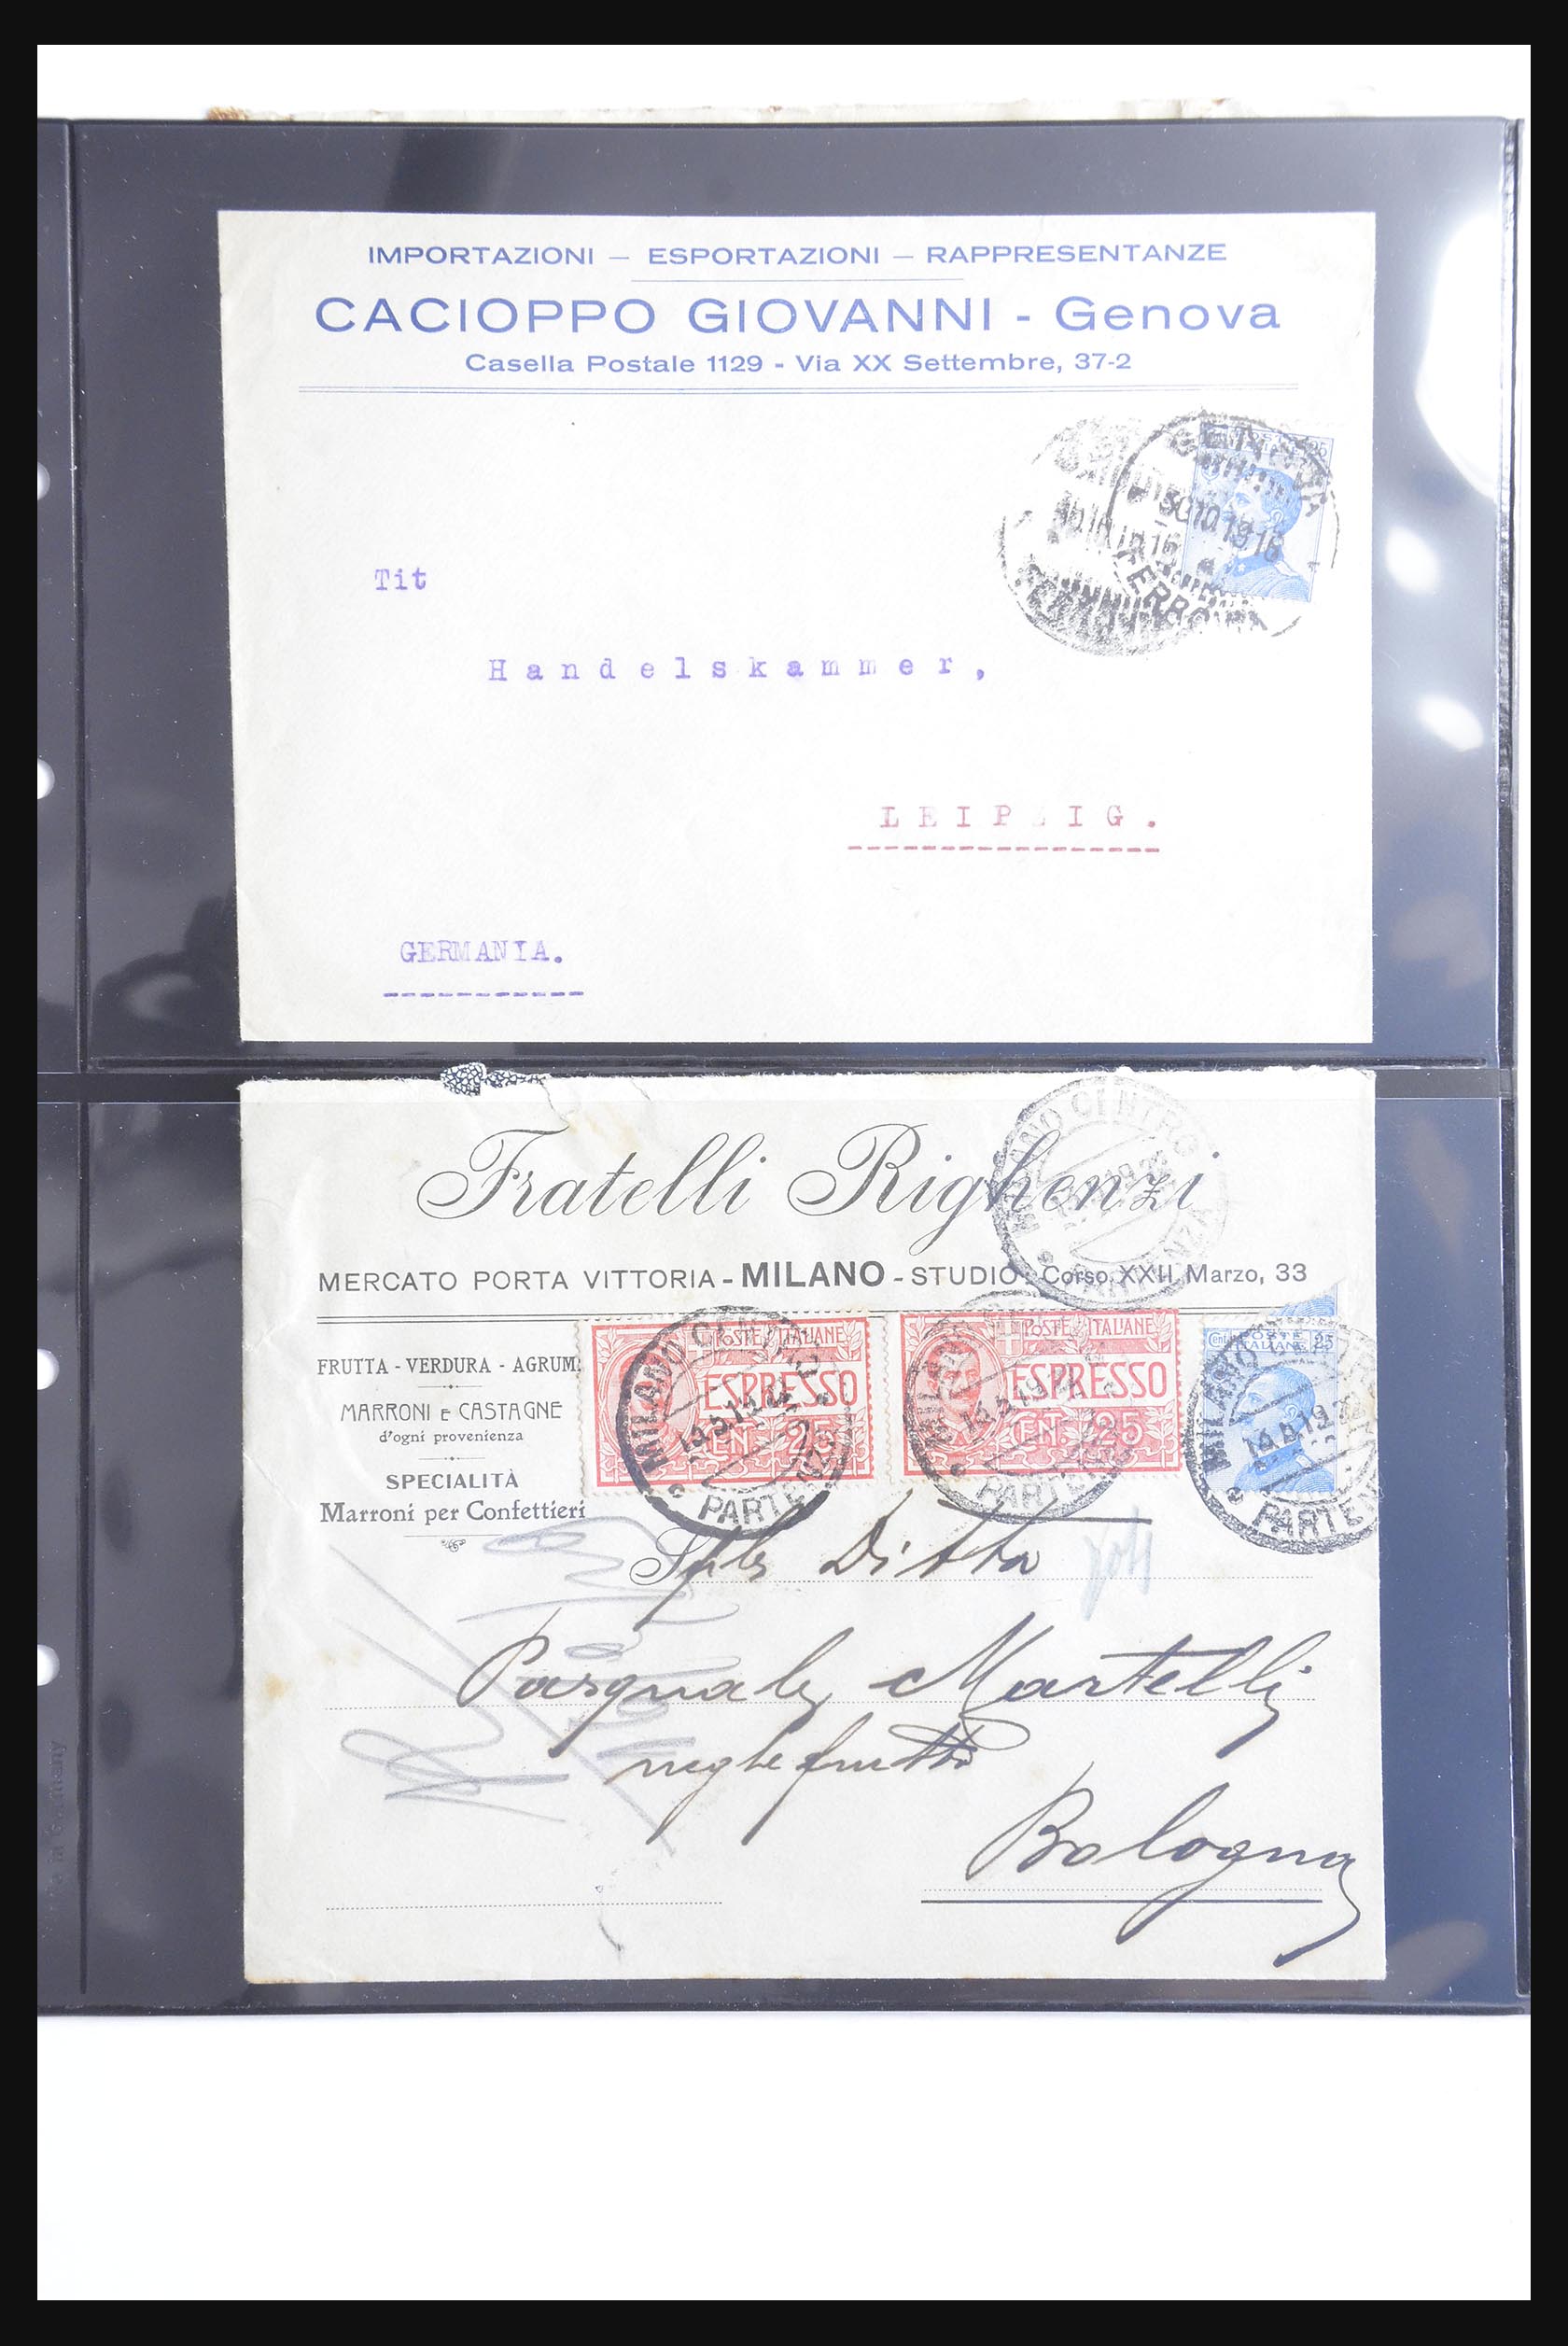 IMPORTAZIONI — ESPORTAZIONI — RAPPRESENTANZE
CACIOPPO GIOVANNI - Genova
Casella Postale 1129 - Via XX Settembre, 37-2
25
GENOVA
30.10.1916
FERROVIA
Tit
Handelskammer,
LEIPZIG.
GERMANIA.
Fratelli Righenzi
MILANO CENTRO
PARTENZA
MERCATO PORTA VITTORIA - MILANO - STUDIO: Corso XXII Marzo, 33
FRUTTA - VERDURA - AGRUMI
MARRONI E CASTAGNE
d'ogni provenienza
SPECIALITÀ
Marroni per Confettieri
POSTE ITALIANE
ESPRESSO
CENT. 25
MILANO CENTRO
PARTENZA
POSTE ITALIANE
ESPRESSO
CENT. 25
MILANO
PARTENZA
Cent. POSTE 25
ITALIANE
MILANO
PARTENZA
Ditta
Pasquale Martelli
Bologna